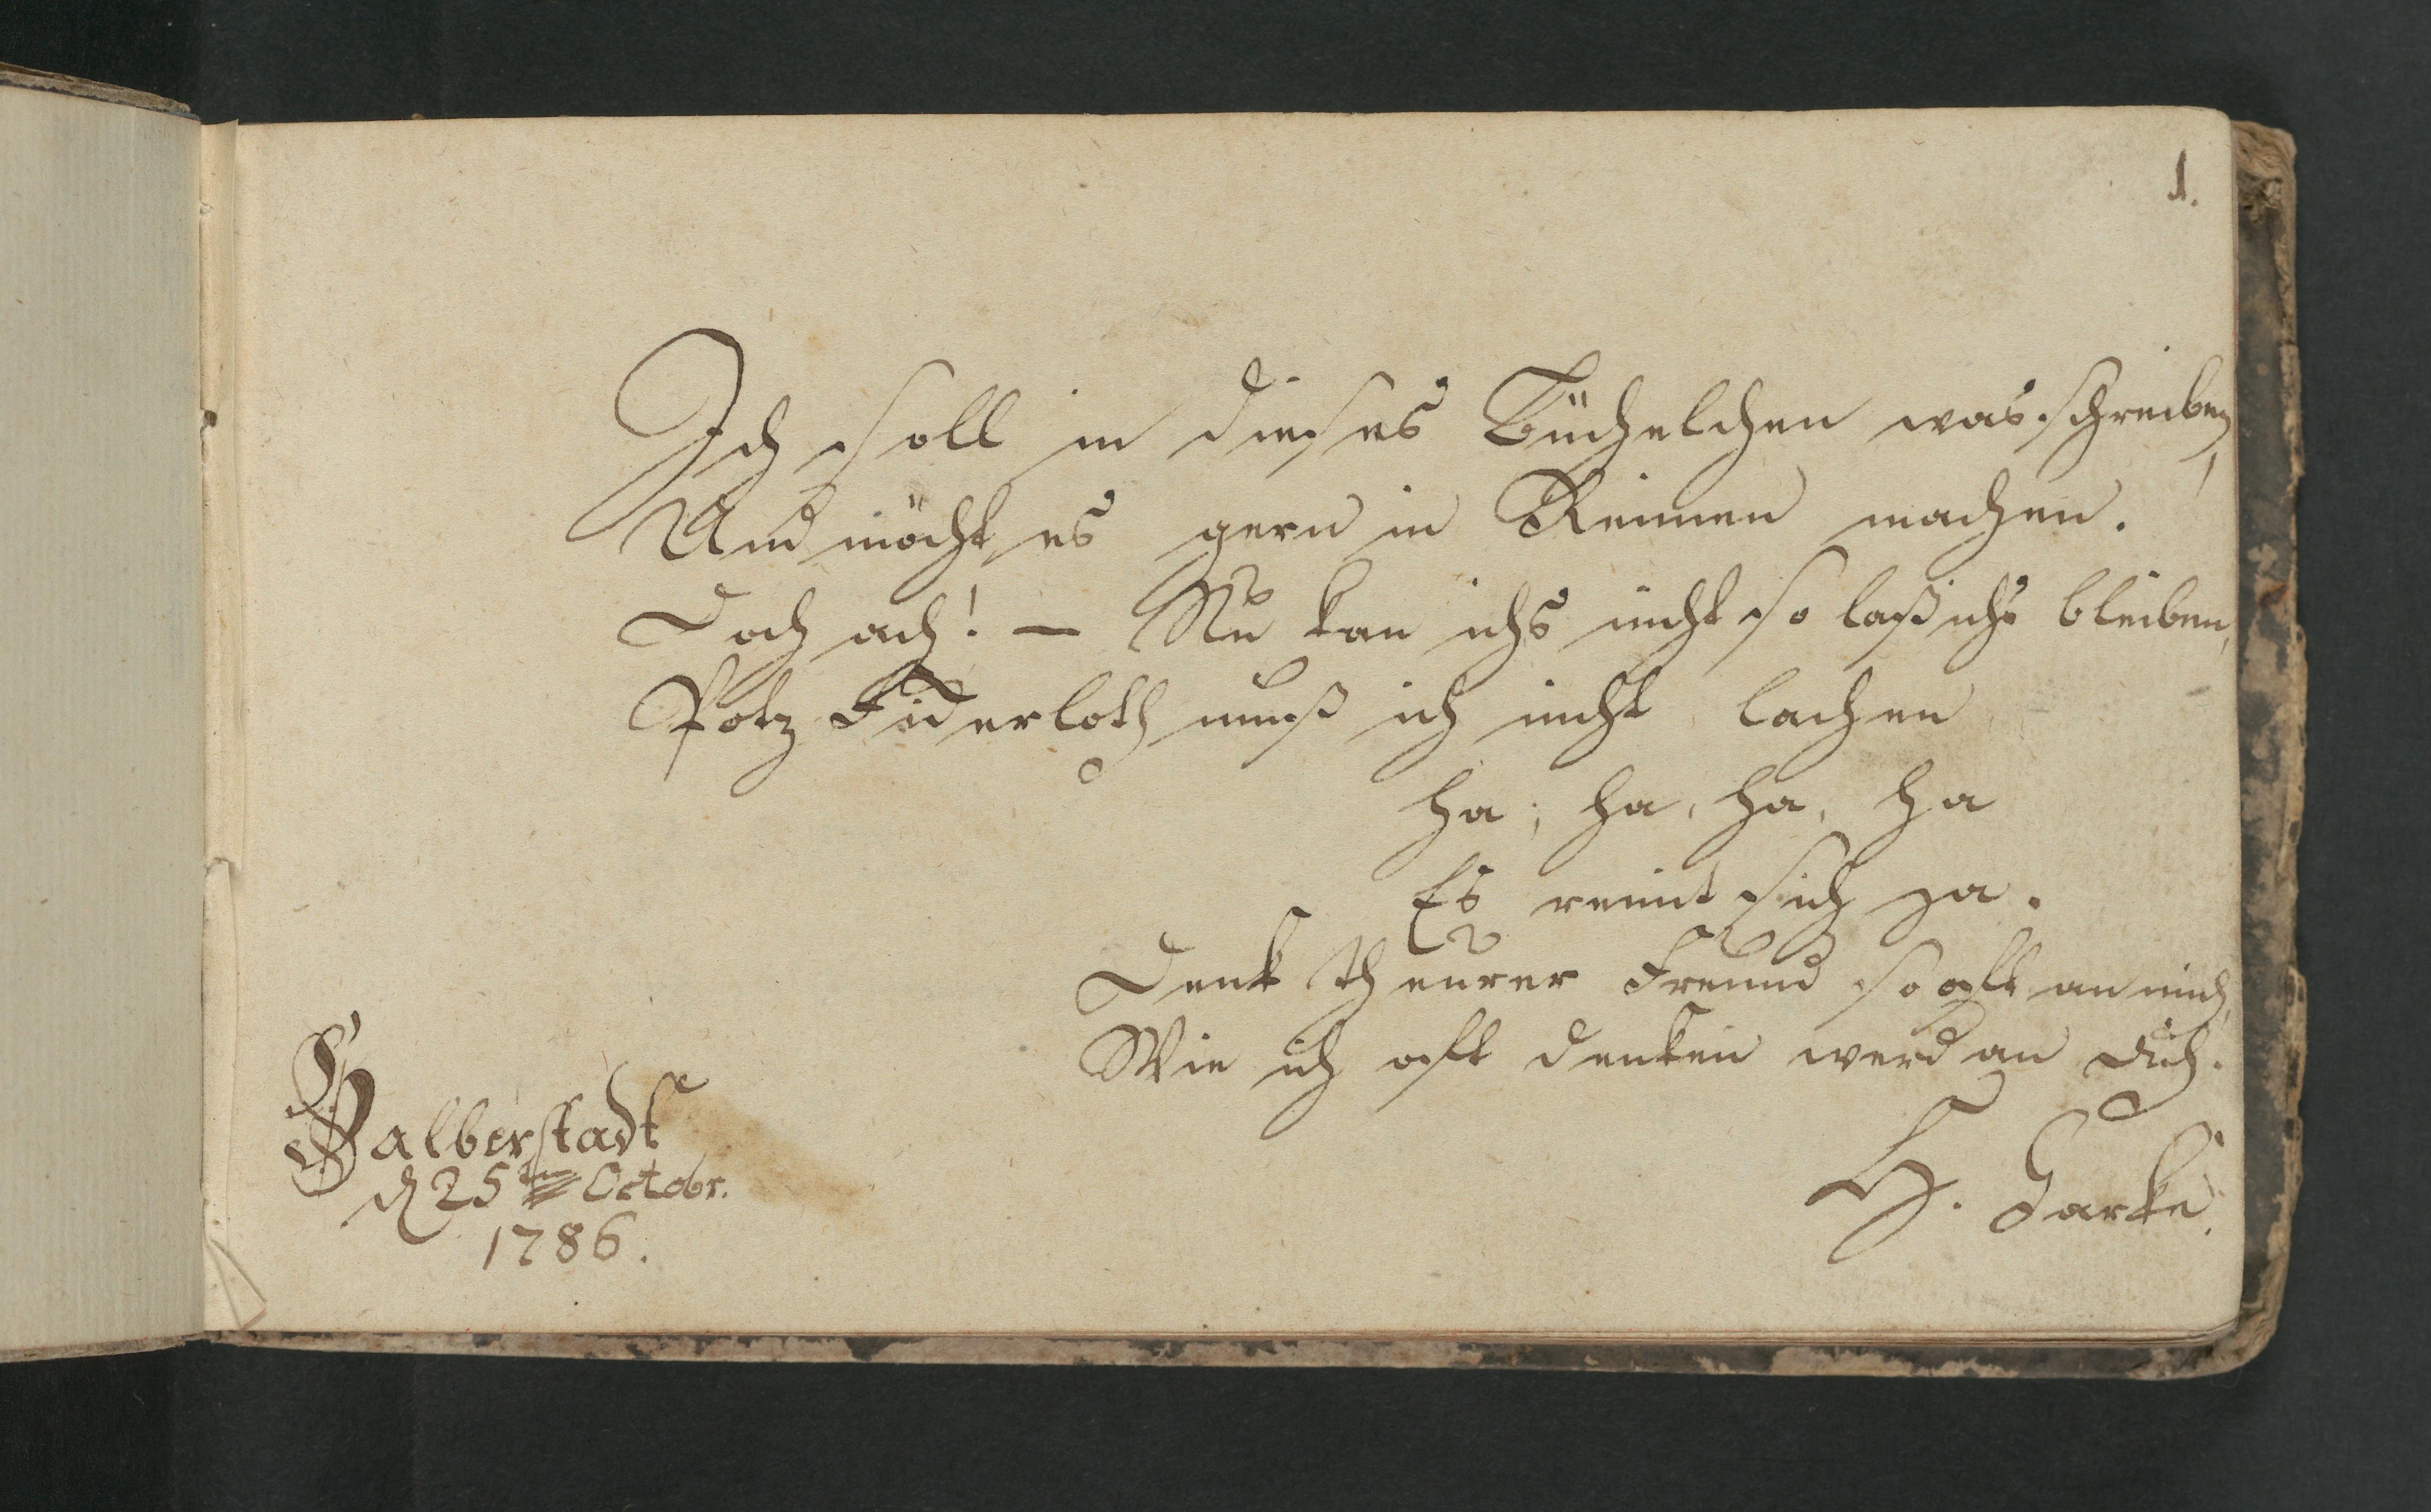 1.
Ich soll in dieses Büchelchen was schreiben,
Und möcht es gern in Reimen machen.
Doch ach! — Nu kan ichs nicht so laß ichs bleiben,
Potz Fiderloth muß ich nicht lachen
ha, ha, ha, ha
Es reimt sich ja.
Denk theurer Freund so oft an mich,
Wie ich oft denken werd an dich.
Halberstadt
d 25ten Octobr.
1786.
H. Garke.